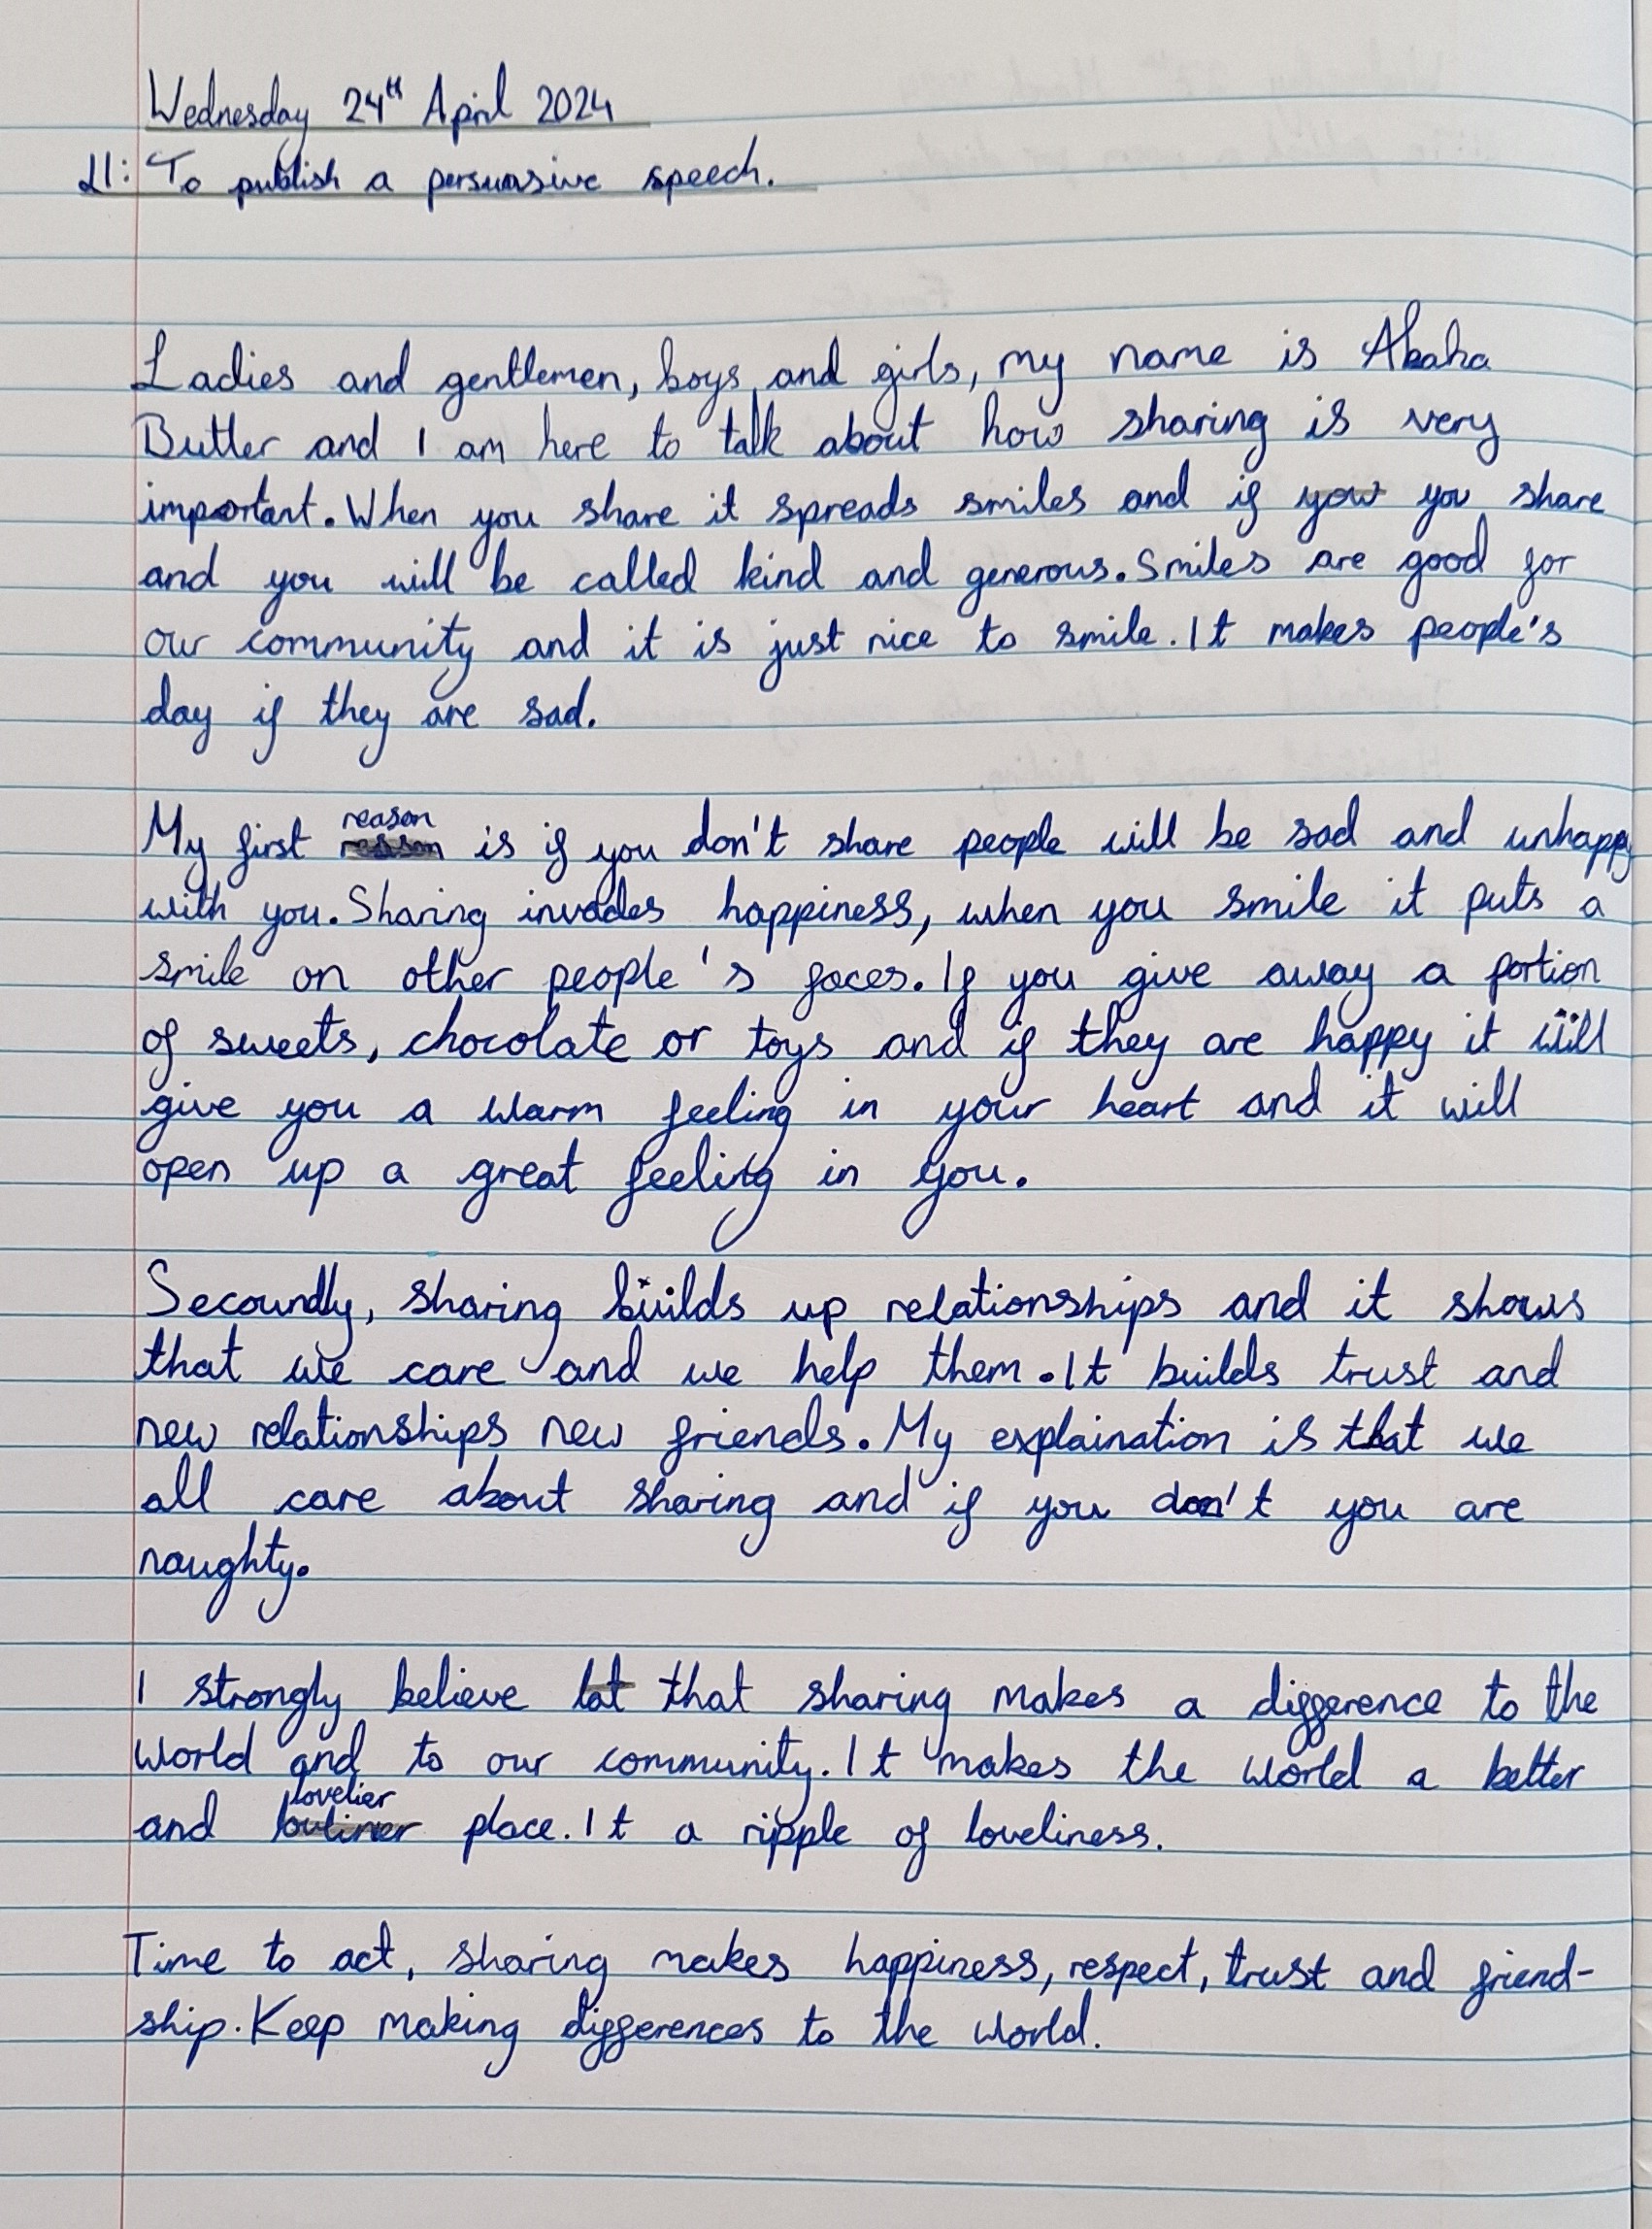 Wednesday 24th April 2024
LI: To publish a persuasive speech.
Ladies and gentlemen, boys and girls, my name is Akaha
Butler and I am here to talk about how sharing is very
important. When you share it spreads smiles and if you share
and you will be called kind and generous. Smiles are good for
our community and it is just nice to smile. It makes people's
day if they are sad.
My first reason is if you don't share people will be sad and unhappy
with you. Sharing invades happiness, when you smile it puts a
smile on other people's faces. If you give away a portion
of sweets, chocolate or toys and if they are happy it will
give you a warm feeling in your heart and it will
open up a great feeling in you.
Secoundly, sharing builds up relationships and it shows
that we care and we help them. It builds trust and
new relationships new friends. My explaination is that we
all care about sharing and if you don't you are
naughty.
I strongly believe that sharing makes a difference to the
world and to our community. It makes the world a better
and lovelier place. It a ripple of loveliness.
Time to act, sharing makes happiness, respect, trust and friend-
ship. Keep making differences to the world.